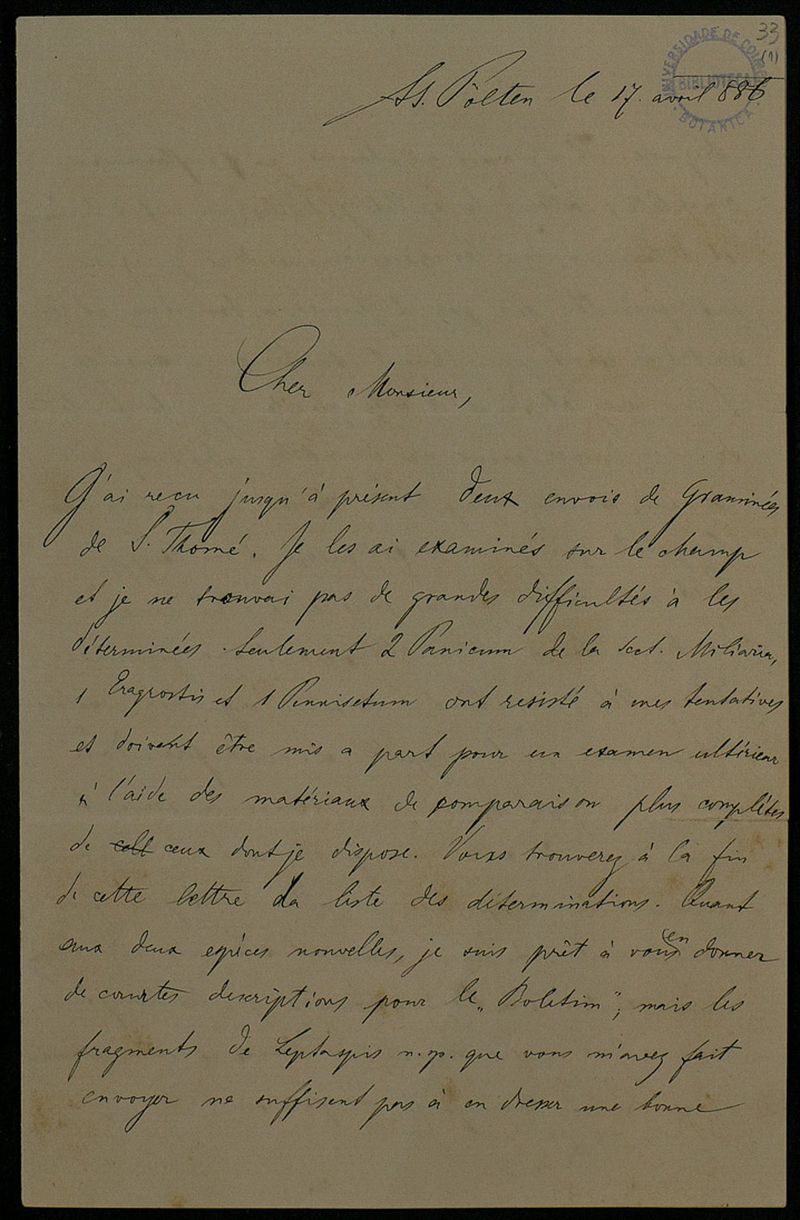 33
(1)
UNIVERSIDADE DE COIMBRA
BIBLIOTECA
BOTANICA
St. Pölten le 17. avril 886
Cher Monsieur,
J'ai recu jusqu'à présent deux envois de Graminées
de S. Thomé. Je les ai examinés sur le champ
et je ne trouvai pas de grandes difficultés à les
déterminées. Seulement 2 Panicum de la sect. Miliaria,
1 Eragrostis et 1 Pennisetum ont resisté à mes tentatives
et doivent être mis a part pour un examen ultérieur
à l'aide des matériaux de comparaison plus complètes
de ceux dont je dispose. Vous trouverez à la fin
de cette lettre la liste des déterminations. Quant
aux deux espèces nouvelles, je suis prêt à vous en donner
de courtes descriptions pour le „Boletim", mais les
fragments de Leptaspis n. sp. que vous m'avez fait
envoyer ne suffisent pas à en dresser une bonne